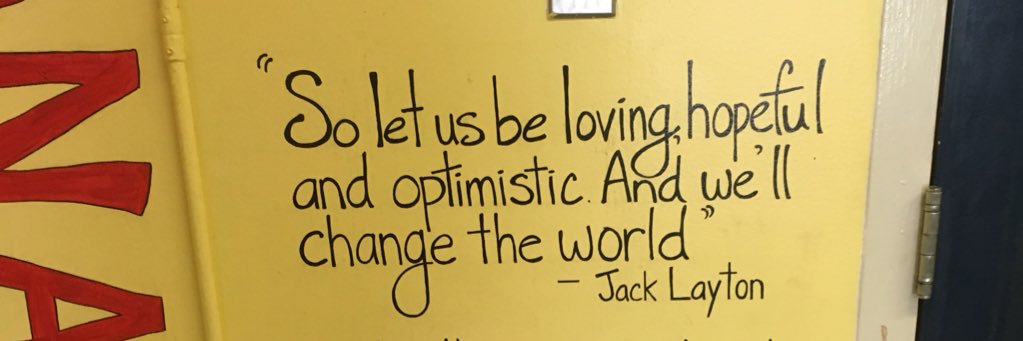 "So let us be loving, hopeful
and optimistic. And we'll
change the world"
- Jack Layton
NNA